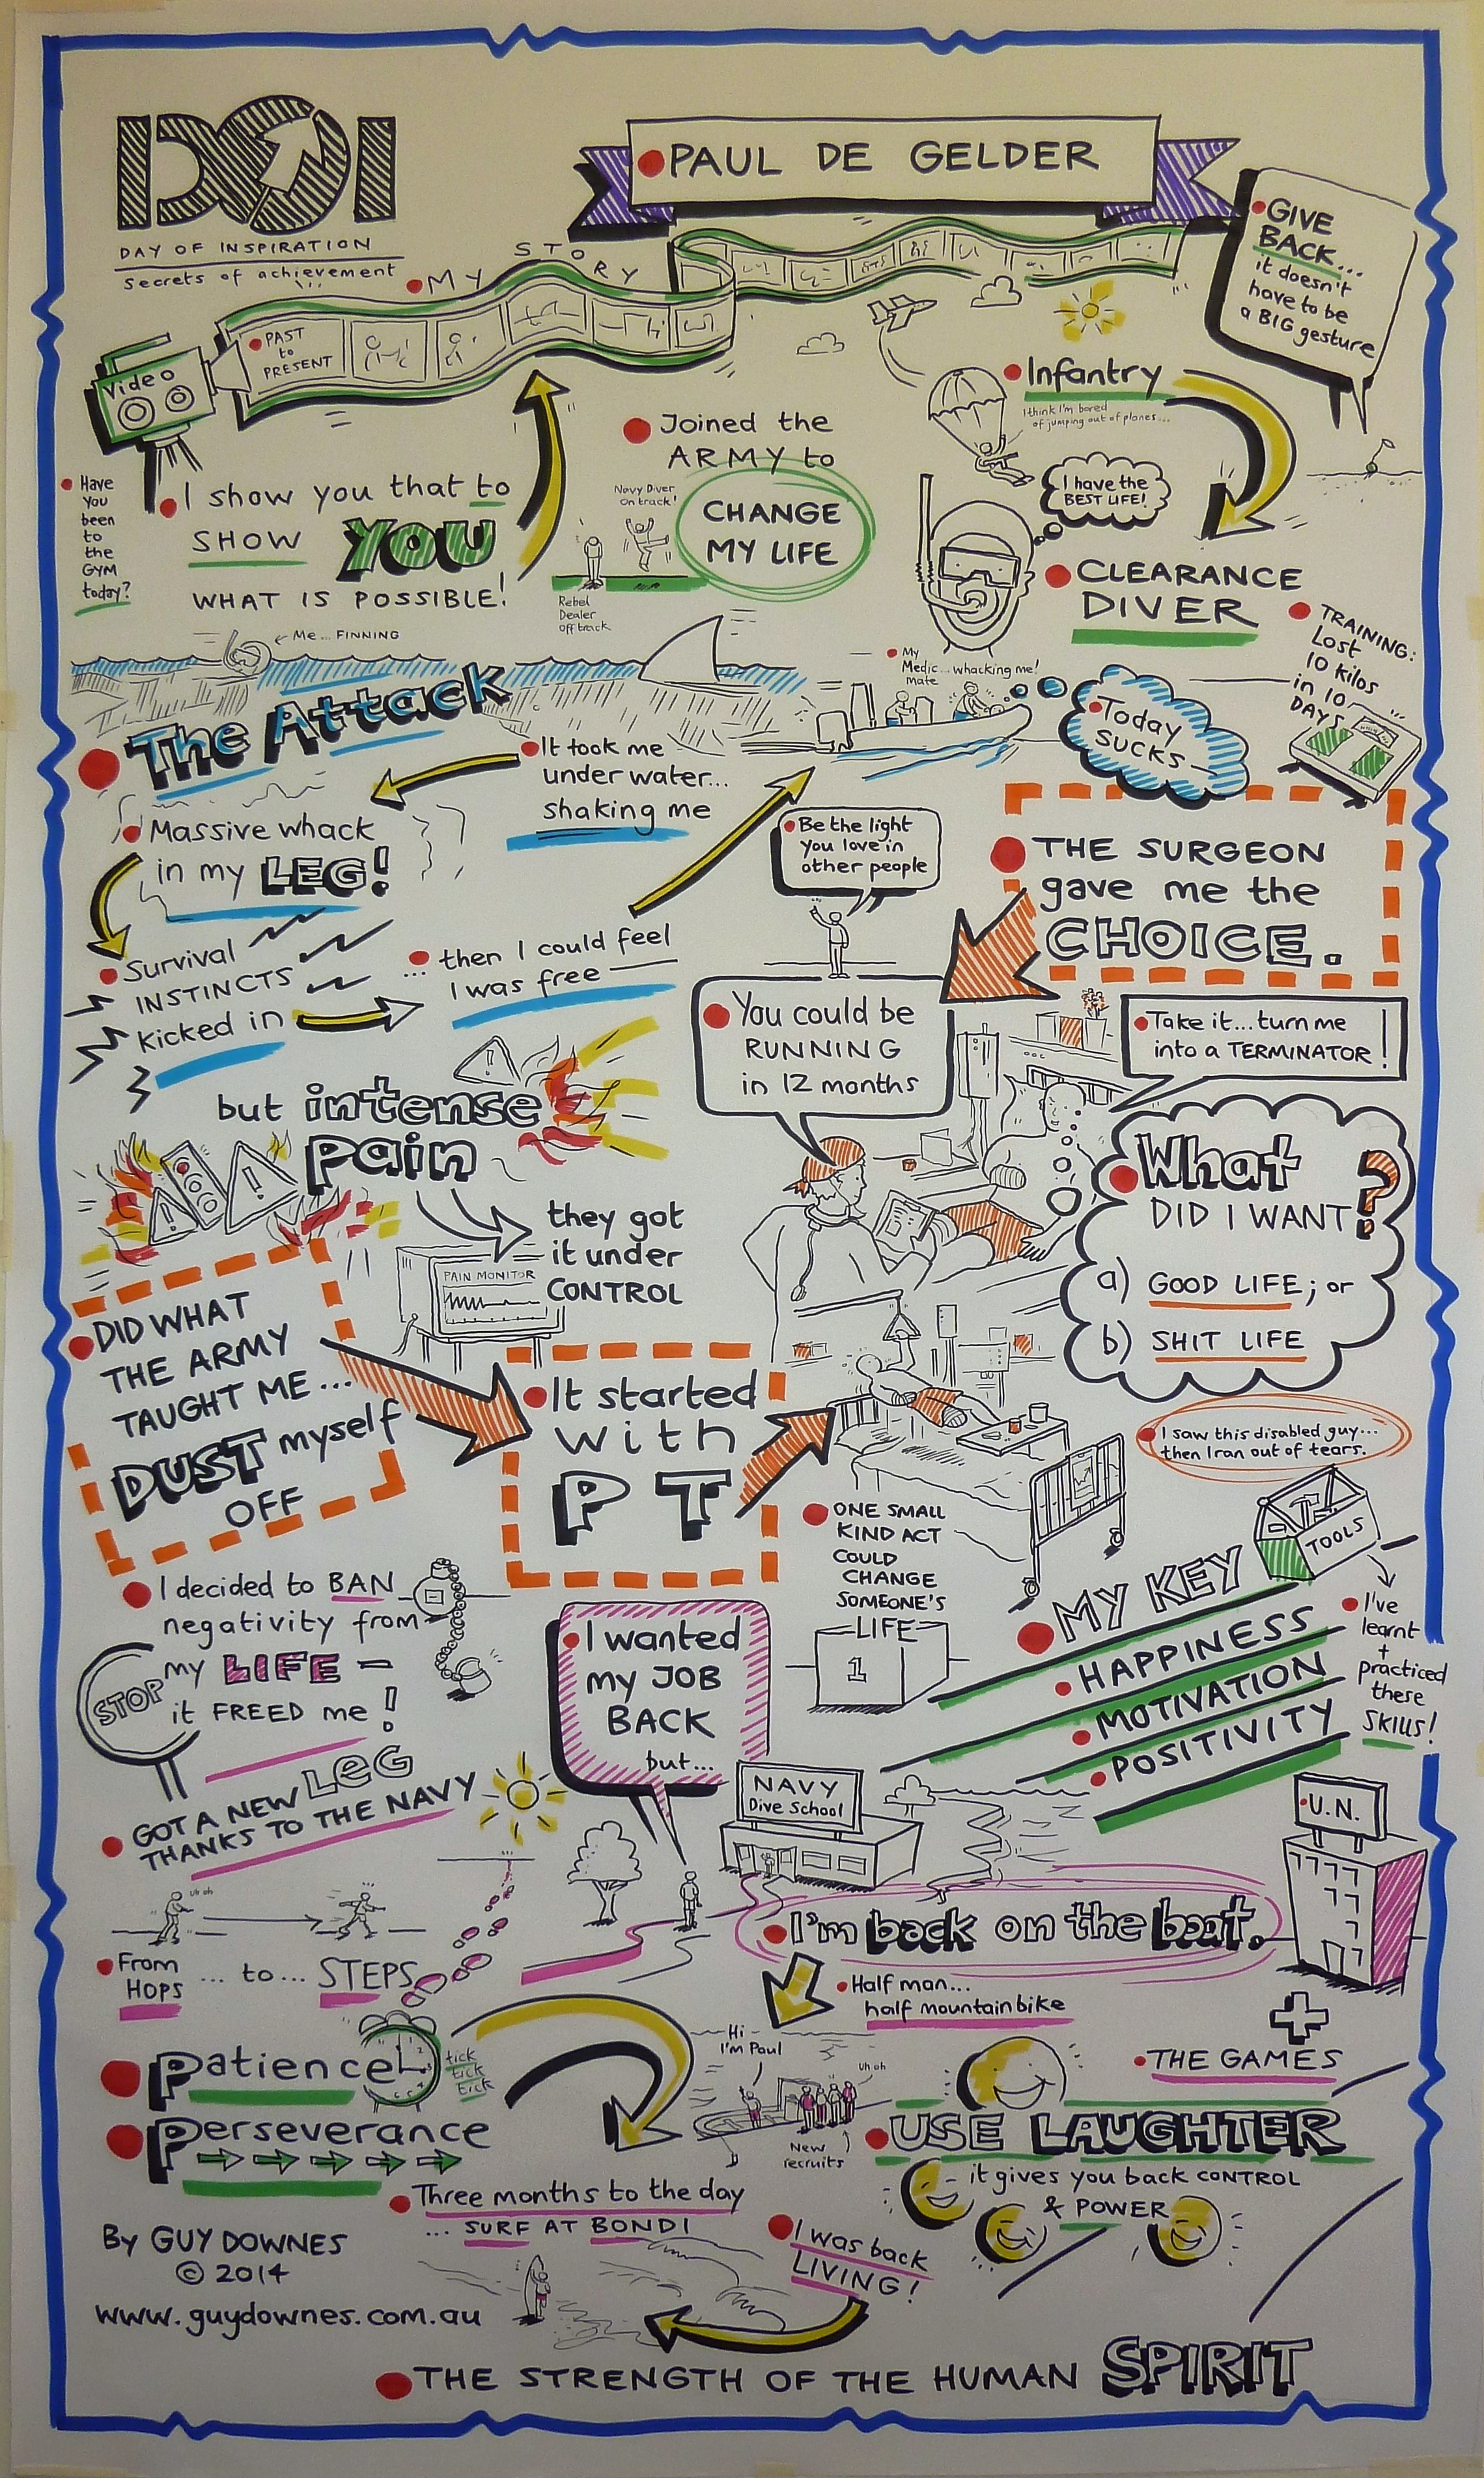 DOI
DAY OF INSPIRATION
secrets of achievement
PAUL DE GELDER
GIVE
BACK...
it doesn't
have to be
a BIG gesture
MY STORY
Video
PAST
to
PRESENT
Have
You
been
to
the
GYM
today?
I show you that to
SHOW YOU
WHAT IS POSSIBLE!
Joined the
ARMY to
CHANGE
MY LIFE
Navy Diver
On track!
Rebel
Dealer
Off track
Infantry
I think I'm bored
of jumping out of planes...
I have the
BEST LIFE!
CLEARANCE
DIVER
TRAINING:
Lost
10 kilos
in 10
DAYS
Me... FINNING
The Attack
My
Medic... whacking me!
mate
Today
SUCKS
It took me
under water...
shaking me
Massive whack
in my LEG!
Survival
INSTINCTS
kicked in
... then I could feel
I was free
Be the light
you love in
other people
THE SURGEON
gave me the
CHOICE.
You could be
RUNNING
in 12 months
Take it... turn me
into a TERMINATOR!
but intense
pain
they got
it under
CONTROL
PAIN MONITOR
What
DID I WANT?
a) GOOD LIFE; or
b) SHIT LIFE
DID WHAT
THE ARMY
TAUGHT ME...
DUST myself
OFF
It started
with
PT
I saw this disabled guy...
then I ran out of tears.
ONE SMALL
KIND ACT
COULD
CHANGE
SOMEONE'S
LIFE
1
TOOLS
MY KEY
HAPPINESS
MOTIVATION
POSITIVITY
I've
learnt
+
practiced
these
SKILLS!
I decided to BAN
negativity from
my LIFE -
it FREED me!
STOP
I wanted
my JOB
BACK
but...
GOT A NEW LEG
THANKS TO THE NAVY
NAVY
Dive School
U.N.
Uh oh
From
HOPS ... to... STEPS
I'm back on the boat.
Half man...
half mountain bike
+
THE GAMES
Patience
tick
tick
tick
Perseverance
Hi
I'm Paul
Uh oh
New
recruits
USE LAUGHTER
- it gives you back CONTROL
& POWER
Three months to the day
... SURF AT BONDI
I was back
LIVING!
By GUY DOWNES
© 2014
www.guydownes.com.au
THE STRENGTH OF THE HUMAN SPIRIT